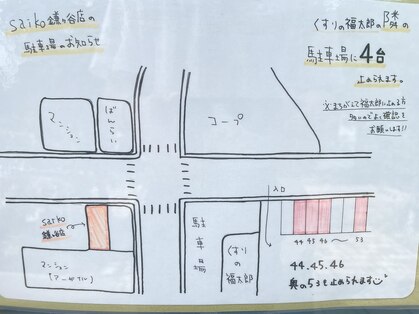 saiko鎌ヶ谷店の
駐車場のお知らせ
くすりの福太郎の隣の
駐車場に4台
止められます。
※まちがえて福太郎に止める方
多いのでよく確認を
お願いします!!
マンション
ばんらい
コープ
saiko
鎌ヶ谷店
マンション
(アーサヒル)
駐車場
くすりの
福太郎
入口
44 45 46 〜 53
44.45.46
奥の53も止められます